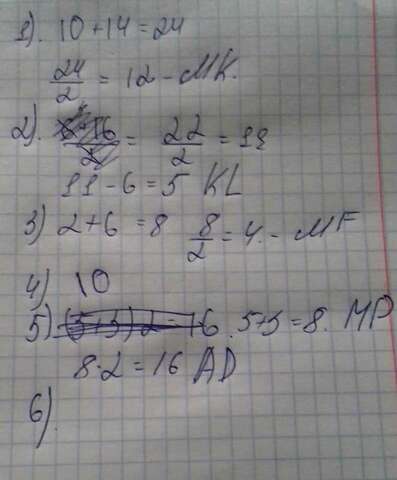 1). 10+14=24
24/2 = 12 - MK.
2). = 22/2 = 11
11-6=5 KL
3) 2+6 =8 8/2=4. - MF
4) 10
5) (5+3)2=16. 5+3=8. MP
8·2=16 AD
6).